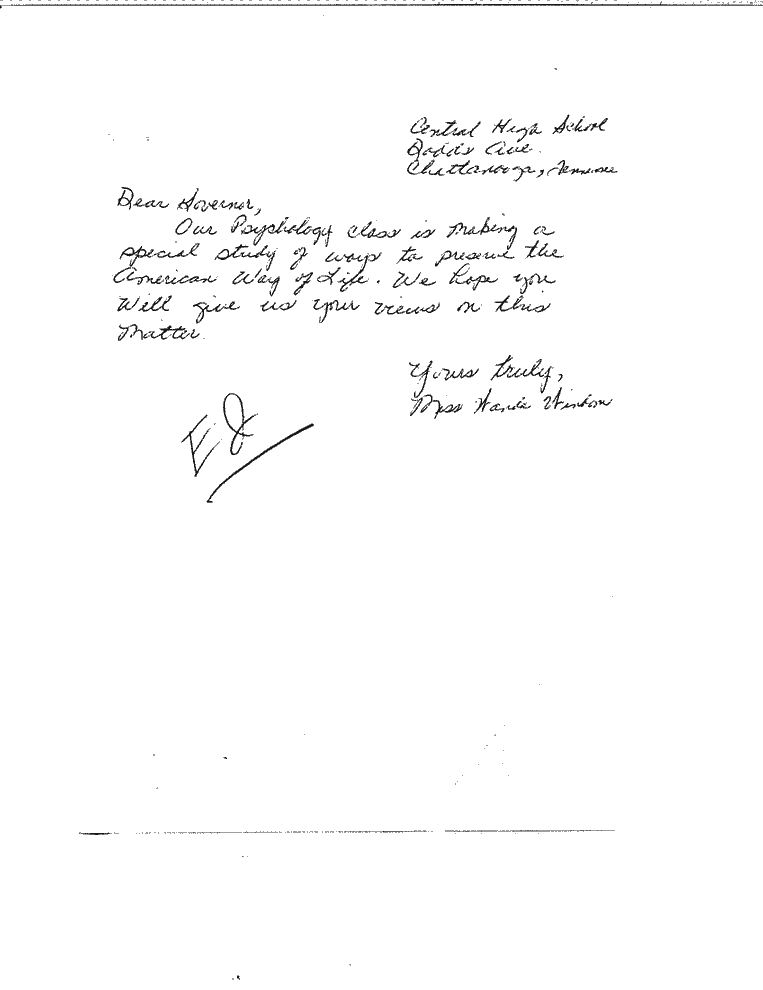 Central High School
Dodds Ave.
Chattanooga, Tennessee
Dear Governor,
Our Psychology class is making a
special study of ways to preserve the
American Way of Life. We hope you
Will give us your views on this
Matter.
Yours truly,
Miss Wanda
EJ